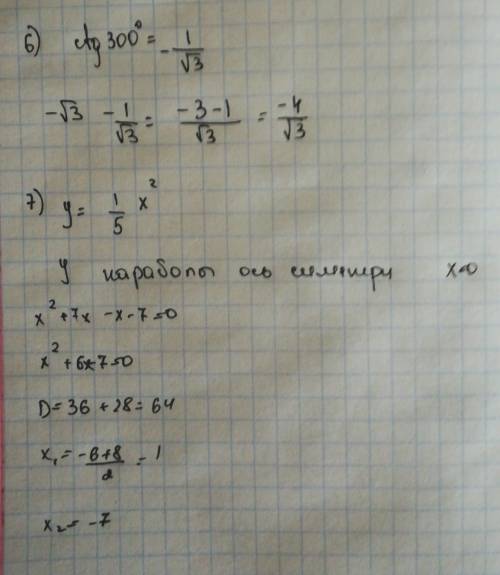 6) ctg 300° = -1/√3
-√3 -1/√3 = (-3-1)/√3 = -4/√3
7) y = 1/5 x²
У параболы ось симметрии x=0
x²+7x-x-7=0
x²+6x-7=0
D=36+28=64
x₁=(-6+8)/2=1
x₂=-7